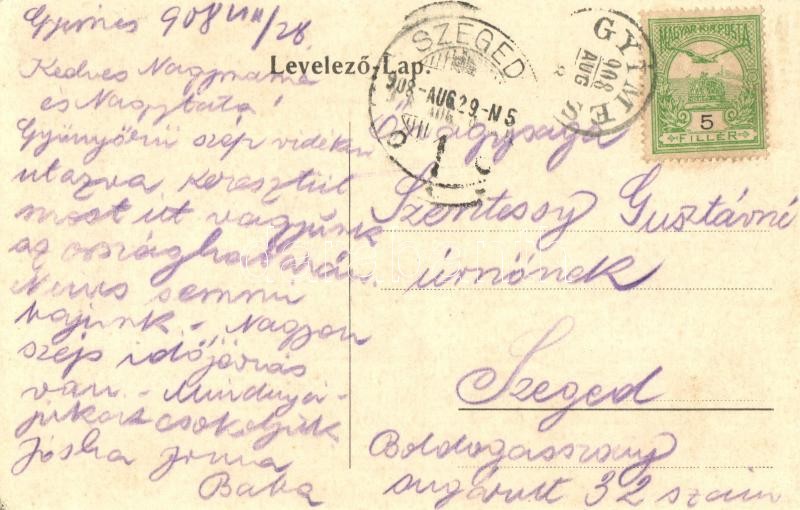 Gyimes 908 VIII/28.
Kedves Nagymama
és Nagytata!
Gyönyörű szép vidéken
utazva keresztül
most itt vagyunk
az országhatárán.
Nincs semmi
bajunk – Nagyon
szép időjárás
van. – Mindnyá-
jukat csokoljuk
Jóska Irma
Baba
Levelező-Lap.
SZEGED
908 -AUG.29.-N5
1
GYIMES
908
AUG
MAGYAR KIR. POSTA
5
FILLÉR
Ő nagysága
Szentessy Gusztávné
úrnőnek
Szeged
Boldogasszony
sugárutt 32 szám